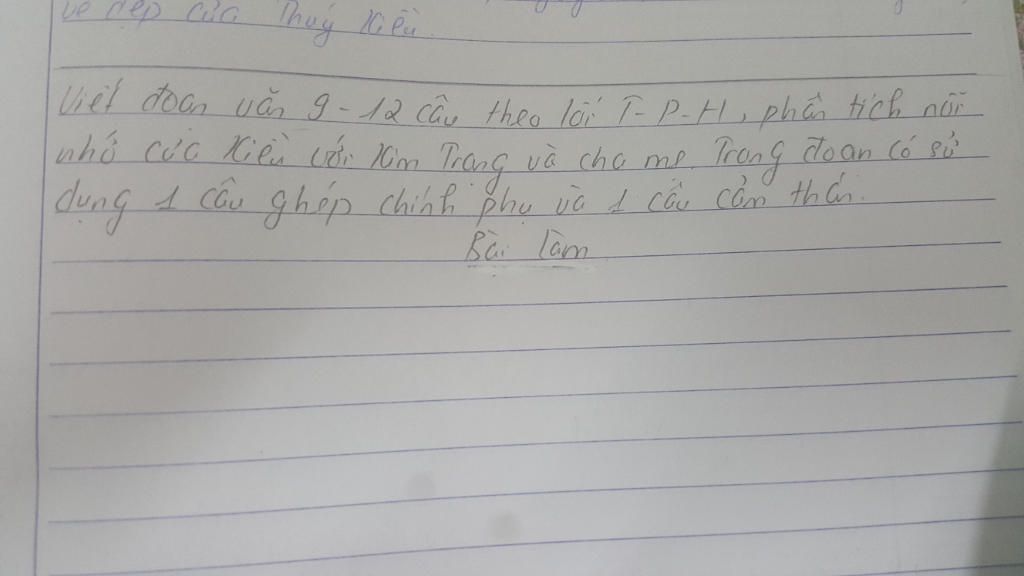 vẻ đẹp của Thuý Kiều.
Viết đoạn văn 9-12 câu theo lối T-P-H, phân tích nỗi
nhớ của Kiều với Kim Trọng và cha mẹ. Trong đoạn có sử
dụng 1 câu ghép chính phụ và 1 câu cảm thán.
Bài làm